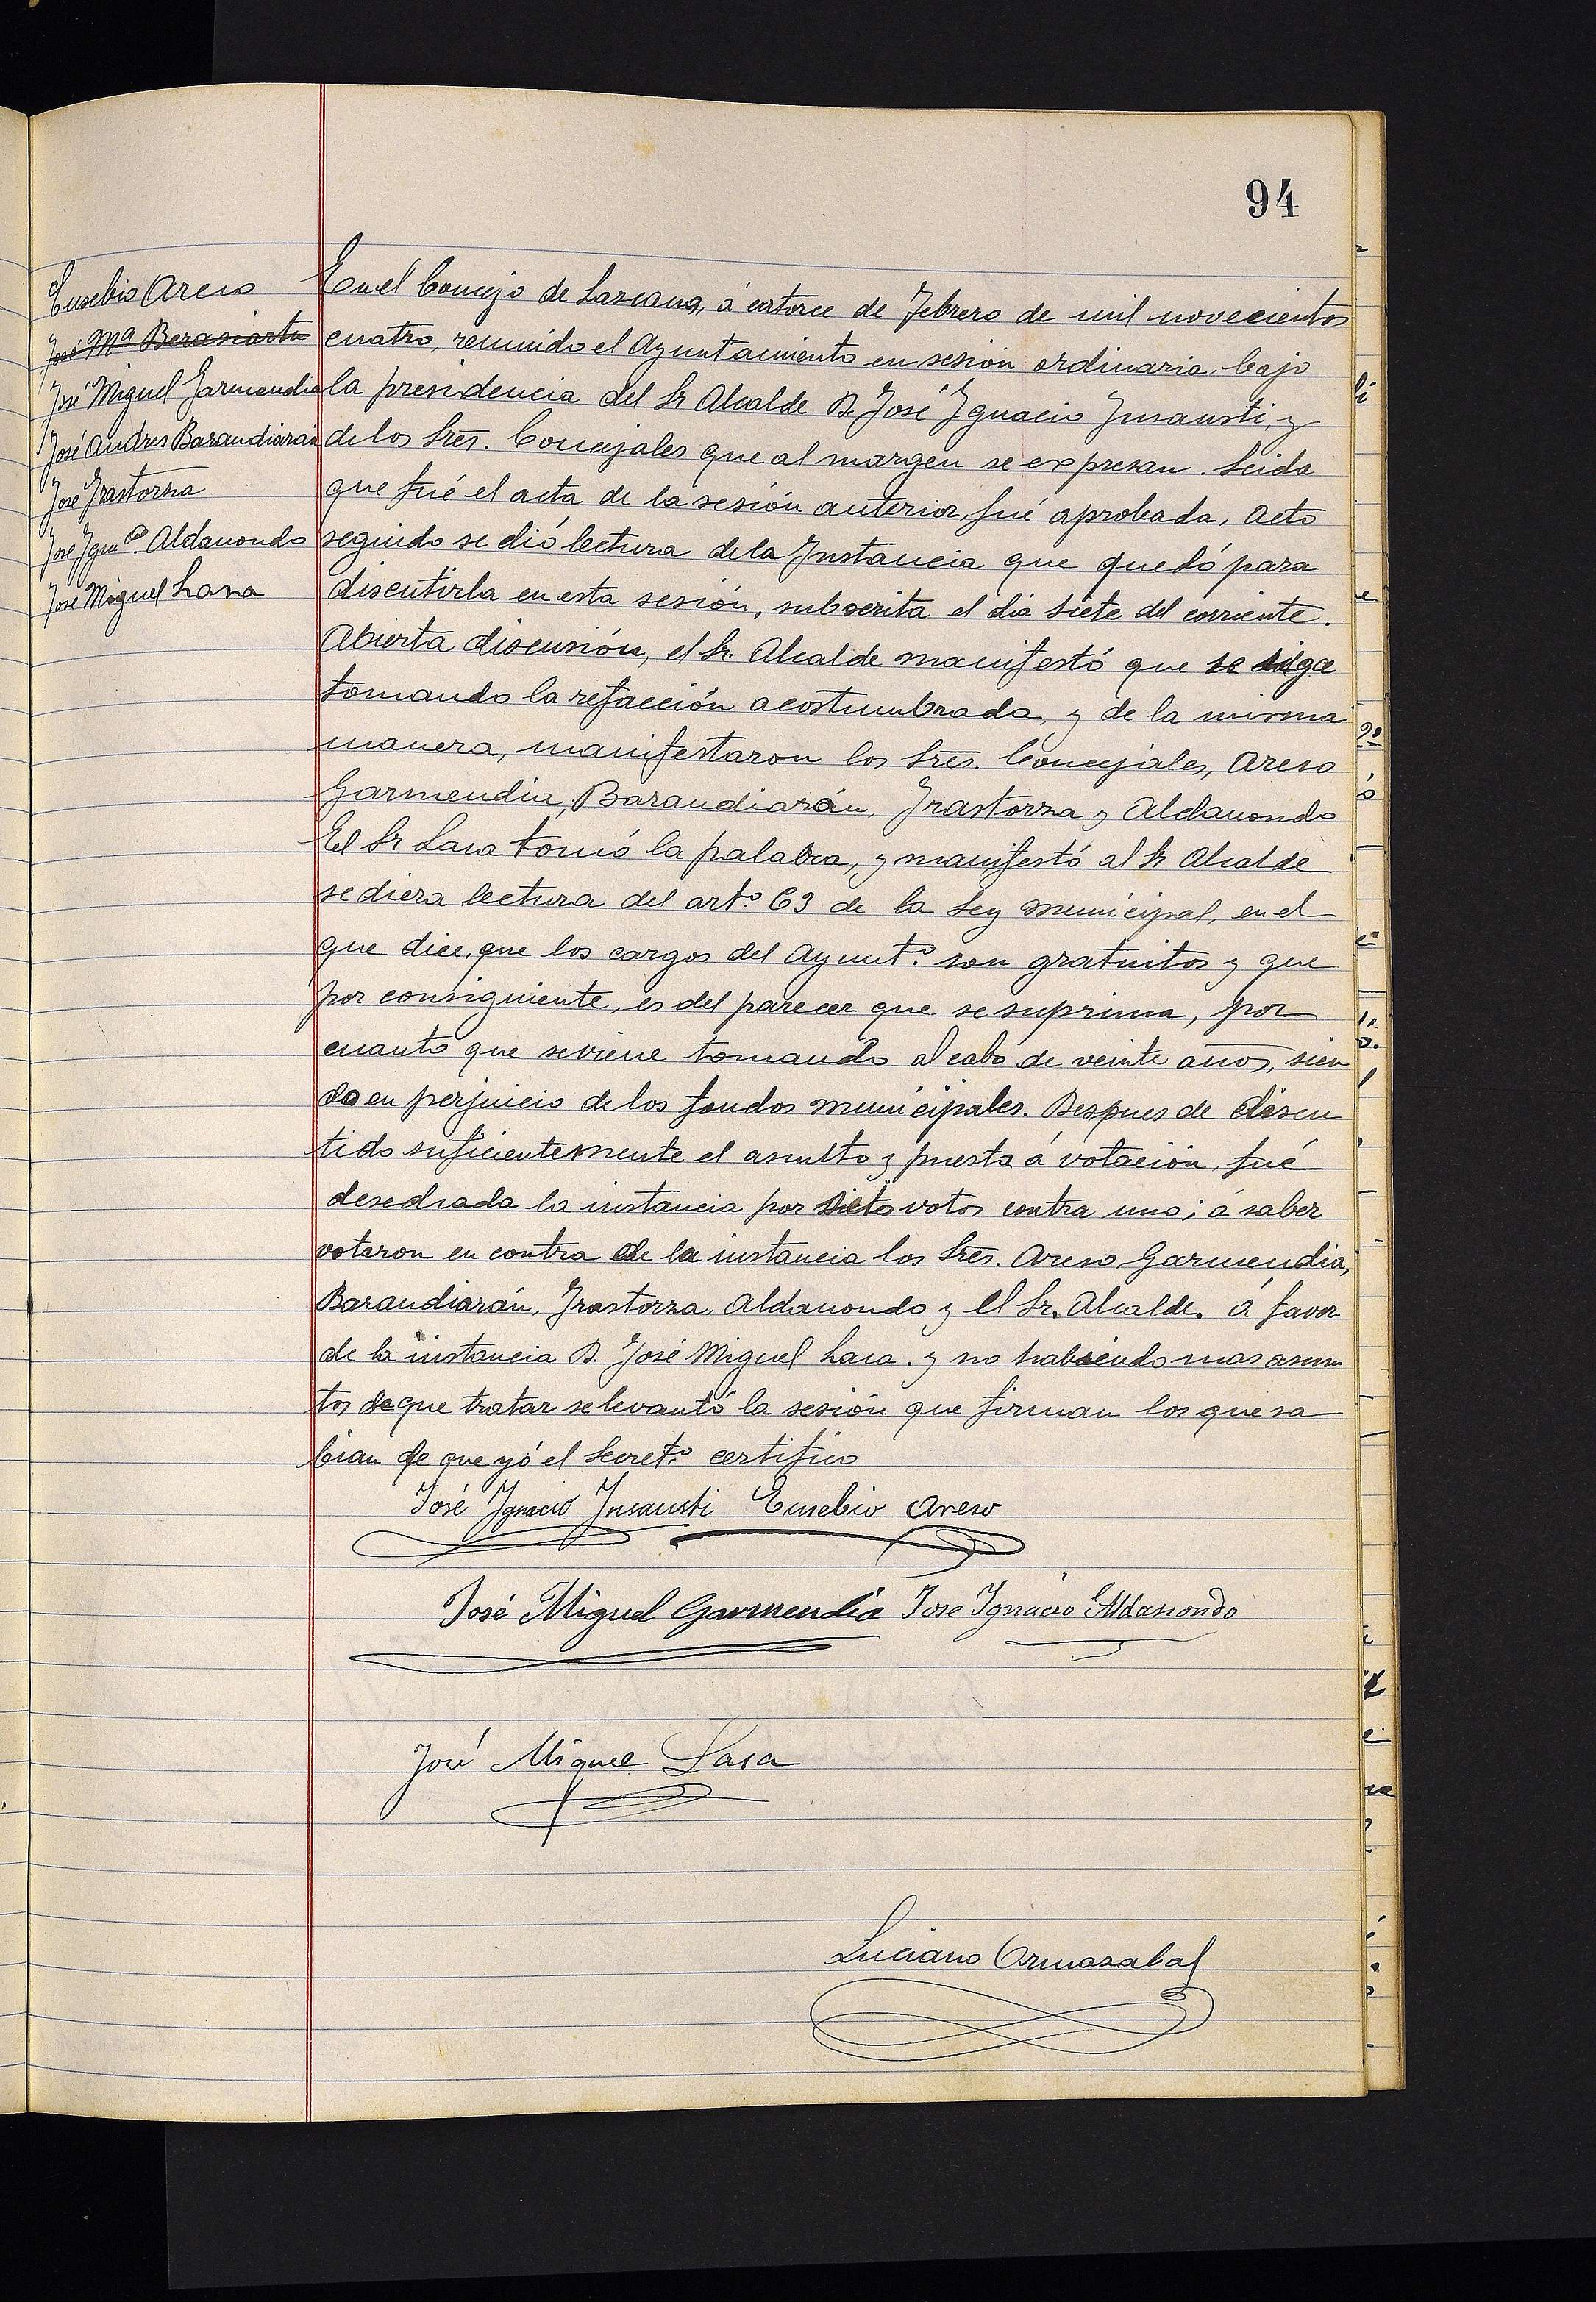 94
Eusebio Areso
José Mª Berasiartu
José Miguel Garmendia
José Andres Barandiaran
José Irastorza
José Ignº Aldanondo
José Miguel Lasa
En el Concejo de Lazcano, á catorce de Febrero de mil novecientos
cuatro, reunido el Ayuntamiento en sesion ordinaria, bajo
la presidencia del Sr Alcalde D. José Ignacio Insausti, y
de los Sres. Concejales que al margen se expresan. Leida
que fué el acta de la sesión anterior, fué aprobada. Acto
seguido se dió lectura de la Instancia que quedó para
discutirla en esta sesión, subscrita el dia siete del corriente.
Abierta discusión, el Sr. Alcalde manifestó que se siga
tomando la refacción acostumbrada, y de la misma
manera, manifestaron los Sres. Concejales, Areso
Garmendia, Barandiarán, Irastorza y Aldanondo
El Sr Lasa tomó la palabra, y manifestó al Sr Alcalde
se diera lectura del artº 63 de la Ley municipal, en el
que dice, que los cargos del Ayuntº son gratuitos y que
por consiguiente, es del parecer que se suprima, por
cuanto que se viene tomando al cabo de veinte años, sien
do en perjuicio de los fondos municipales. Despues de discu
tido suficientemente el asunto y puesta á votación, fué
desechada la instancia por siete votos contra uno; á saber
votaron en contra de la instancia los Sres. Areso, Garmendia,
Barandiarán, Irastorza, Aldanondo y el Sr. Alcalde. á favor
de la instancia D. José Miguel Lasa. y no habiendo mas asun
tos de que tratar se levantó la sesión que firman los que sa
bian de que yó el Secretº certifico
José Ignacio Insausti Eusebio Areso
José Miguel Garmendia Jose Ignacio Aldanondo
José Miguel Lasa
Luciano Ormazabal